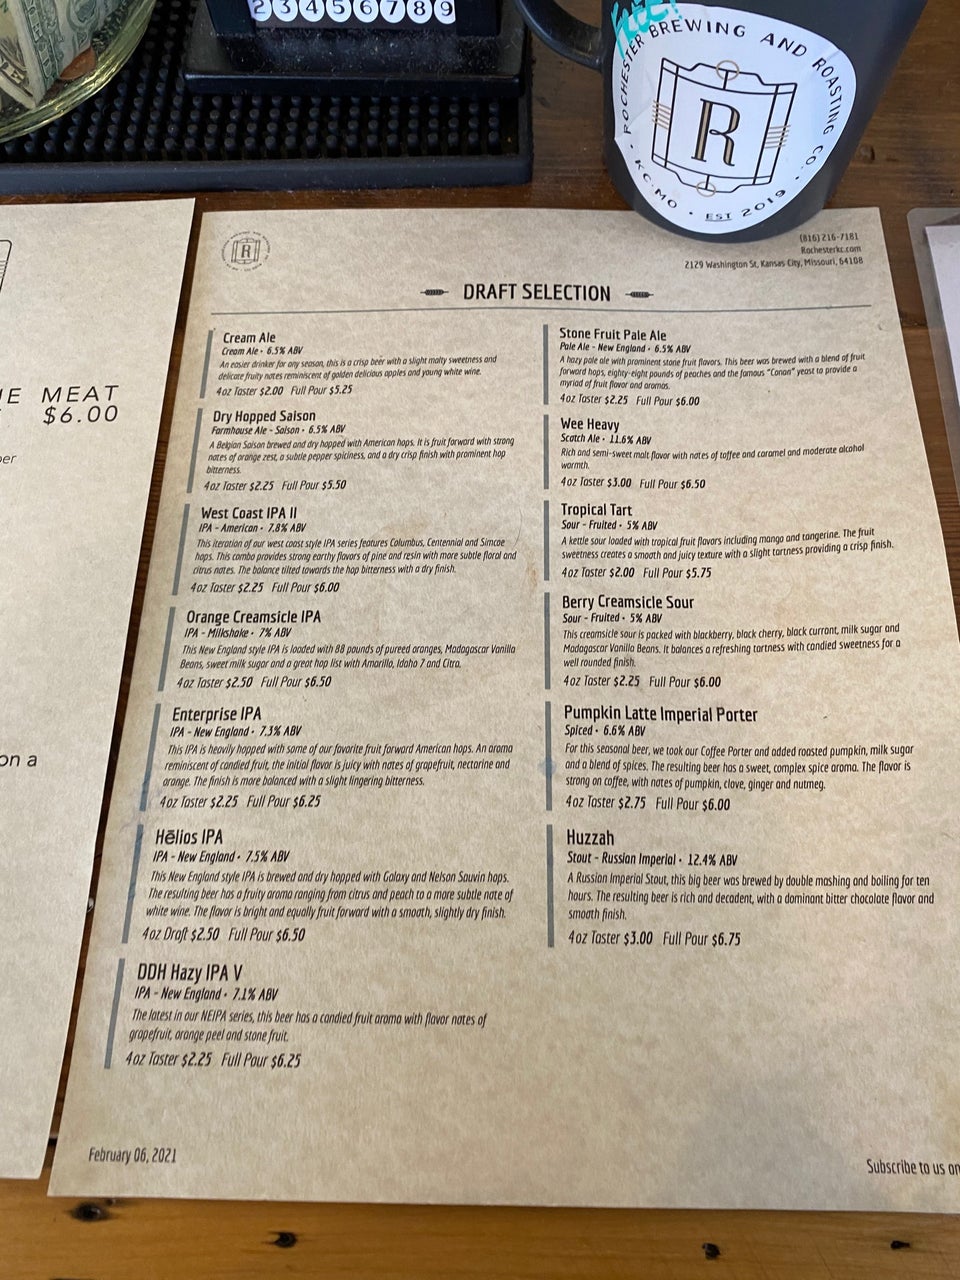 2 3 4 5 6 7 8 9
FREE!
ROCHESTER BREWING AND ROASTING CO.
R
• KC•MO • EST 2019 •
MEAT
$6.00
on a
R
(816) 216-7181
Rochesterkc.com
2129 Washington St, Kansas City, Missouri, 64108
DRAFT SELECTION
Cream Ale
Cream Ale • 6.5% ABV
An easier drinker for any season, this is a crisp beer with a slight malty sweetness and
delicate fruity notes reminiscent of golden delicious apples and young white wine.
4oz Taster $2.00 Full Pour $5.25
Dry Hopped Saison
Farmhouse Ale - Saison • 6.5% ABV
A Belgian Saison brewed and dry hopped with American hops. It is fruit forward with strong
notes of orange zest, a subtle pepper spiciness, and a dry crisp finish with prominent hop
bitterness.
4oz Taster $2.25 Full Pour $5.50
West Coast IPA II
IPA - American • 7.8% ABV
This iteration of our west coast style IPA series features Columbus, Centennial and Simcoe
hops. This combo provides strong earthy flavors of pine and resin with more subtle floral and
citrus notes. The balance tilted towards the hop bitterness with a dry finish.
4oz Taster $2.25 Full Pour $6.00
Orange Creamsicle IPA
IPA - Milkshake • 7% ABV
This New England style IPA is loaded with 88 pounds of pureed oranges, Madagascar Vanilla
Beans, sweet milk sugar and a great hop list with Amarillo, Idaho 7 and Citra.
4oz Taster $2.50 Full Pour $6.50
Enterprise IPA
IPA - New England • 7.3% ABV
This IPA is heavily hopped with some of our favorite fruit forward American hops. An aroma
reminiscent of candied fruit, the initial flavor is juicy with notes of grapefruit, nectarine and
orange. The finish is more balanced with a slight lingering bitterness.
4oz Taster $2.25 Full Pour $6.25
Hēlios IPA
IPA - New England • 7.5% ABV
This New England style IPA is brewed and dry hopped with Galaxy and Nelson Sauvin hops.
The resulting beer has a fruity aroma ranging from citrus and peach to a more subtle note of
white wine. The flavor is bright and equally fruit forward with a smooth, slightly dry finish.
4oz Draft $2.50 Full Pour $6.50
DDH Hazy IPA V
IPA - New England • 7.1% ABV
The latest in our NEIPA series, this beer has a candied fruit aroma with flavor notes of
grapefruit, orange peel and stone fruit.
4oz Taster $2.25 Full Pour $6.25
Stone Fruit Pale Ale
Pale Ale - New England • 6.5% ABV
A hazy pale ale with prominent stone fruit flavors. This beer was brewed with a blend of fruit
forward hops, eighty-eight pounds of peaches and the famous "Conan" yeast to provide a
myriad of fruit flavor and aromas.
4oz Taster $2.25 Full Pour $6.00
Wee Heavy
Scotch Ale • 11.6% ABV
Rich and semi-sweet malt flavor with notes of toffee and caramel and moderate alcohol
warmth.
4oz Taster $3.00 Full Pour $6.50
Tropical Tart
Sour - Fruited • 5% ABV
A kettle sour loaded with tropical fruit flavors including mango and tangerine. The fruit
sweetness creates a smooth and juicy texture with a slight tartness providing a crisp finish.
4oz Taster $2.00 Full Pour $5.75
Berry Creamsicle Sour
Sour - Fruited • 5% ABV
This creamsicle sour is packed with blackberry, black cherry, black currant, milk sugar and
Madagascar Vanilla Beans. It balances a refreshing tartness with candied sweetness for a
well rounded finish.
4oz Taster $2.25 Full Pour $6.00
Pumpkin Latte Imperial Porter
Spiced • 6.6% ABV
For this seasonal beer, we took our Coffee Porter and added roasted pumpkin, milk sugar
and a blend of spices. The resulting beer has a sweet, complex spice aroma. The flavor is
strong on coffee, with notes of pumpkin, clove, ginger and nutmeg.
4oz Taster $2.75 Full Pour $6.00
Huzzah
Stout - Russian Imperial • 12.4% ABV
A Russian Imperial Stout, this big beer was brewed by double mashing and boiling for ten
hours. The resulting beer is rich and decadent, with a dominant bitter chocolate flavor and
smooth finish.
4oz Taster $3.00 Full Pour $6.75
February 06, 2021
Subscribe to us on